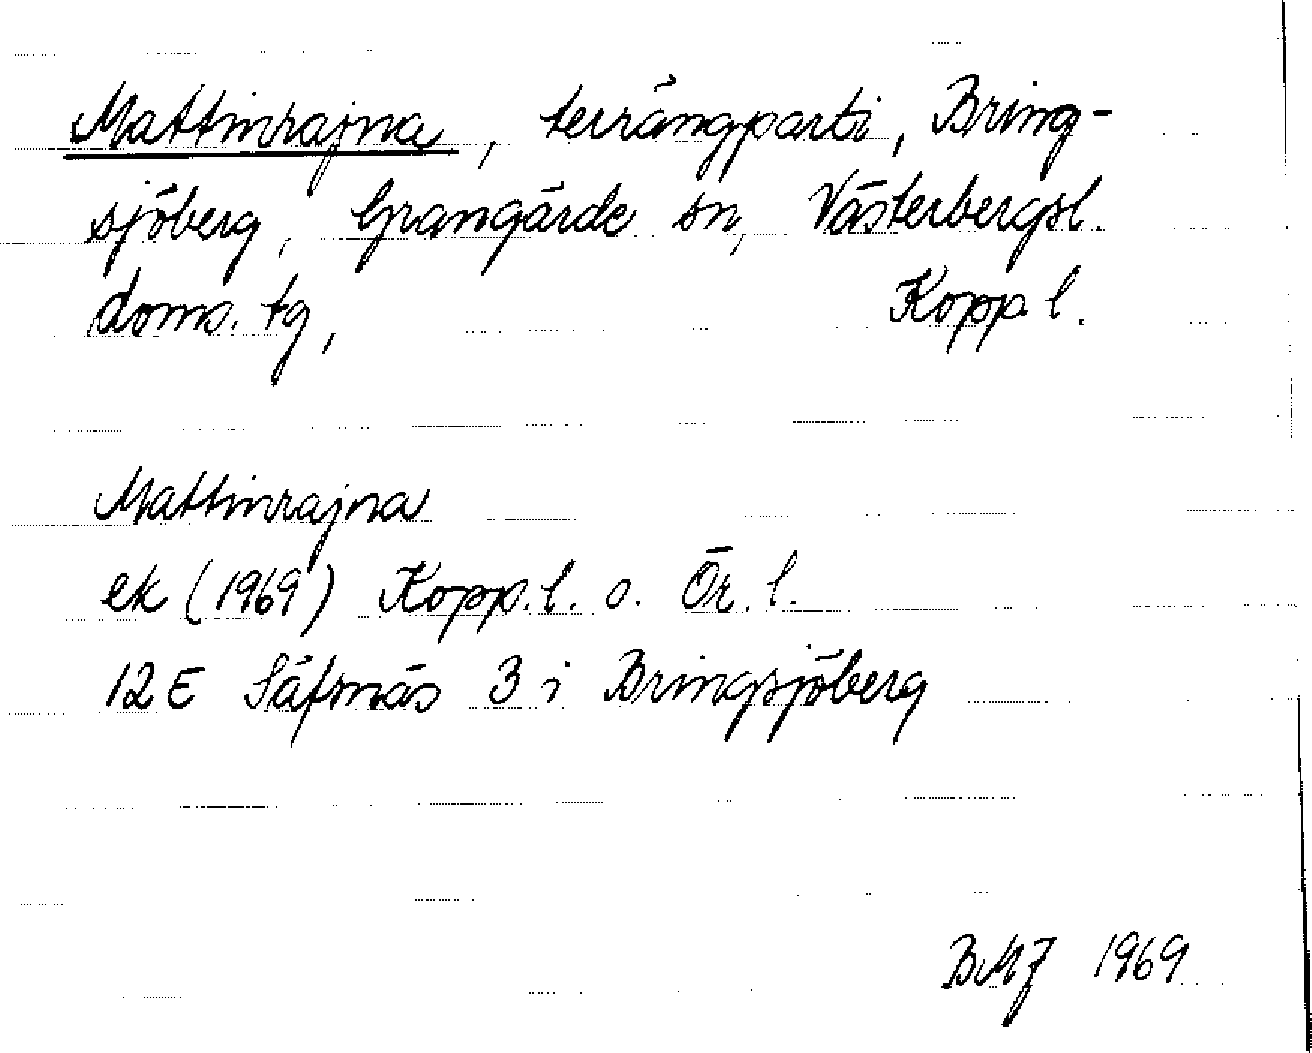 Mattinrajna, terrängparti, Bring-
sjöberg, Grangärde sn, Västerbergsl.
doms. tg, Kopp. l.
Mattinrajna
ek (1969) Kopp. l. o. Ör. l.
12 E Säfsnäs 3 i Bringsjöberg
BMJ 1969